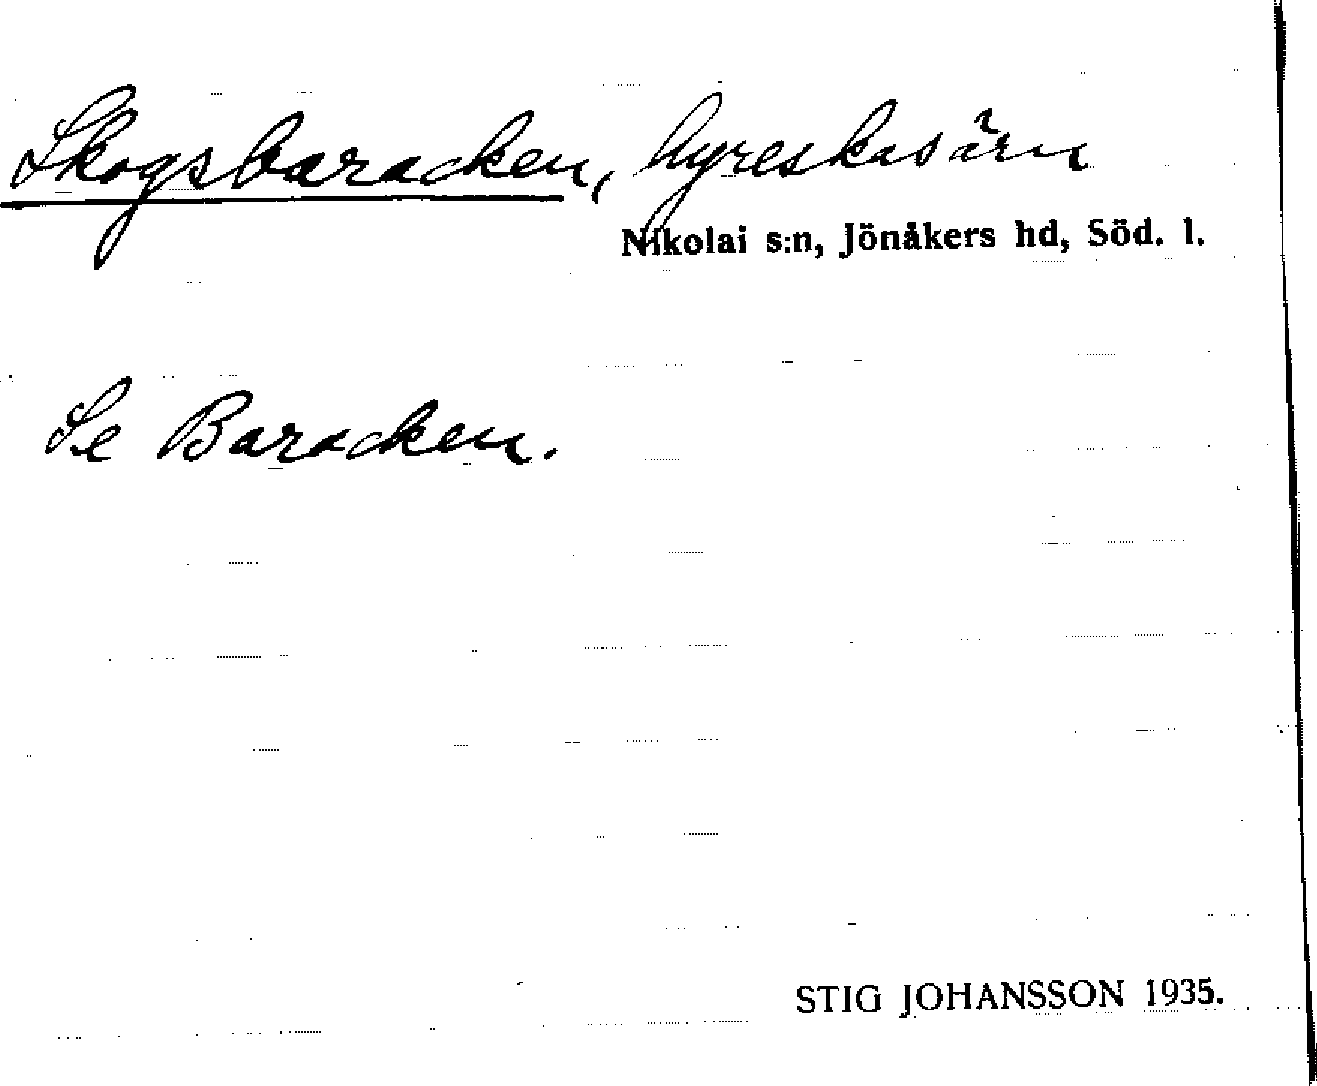 Skogsbaracken, hyreskasärn
Nikolai s:n, Jönåkers hd, Söd. l.
Se Baracken.
STIG JOHANSSON 1935.